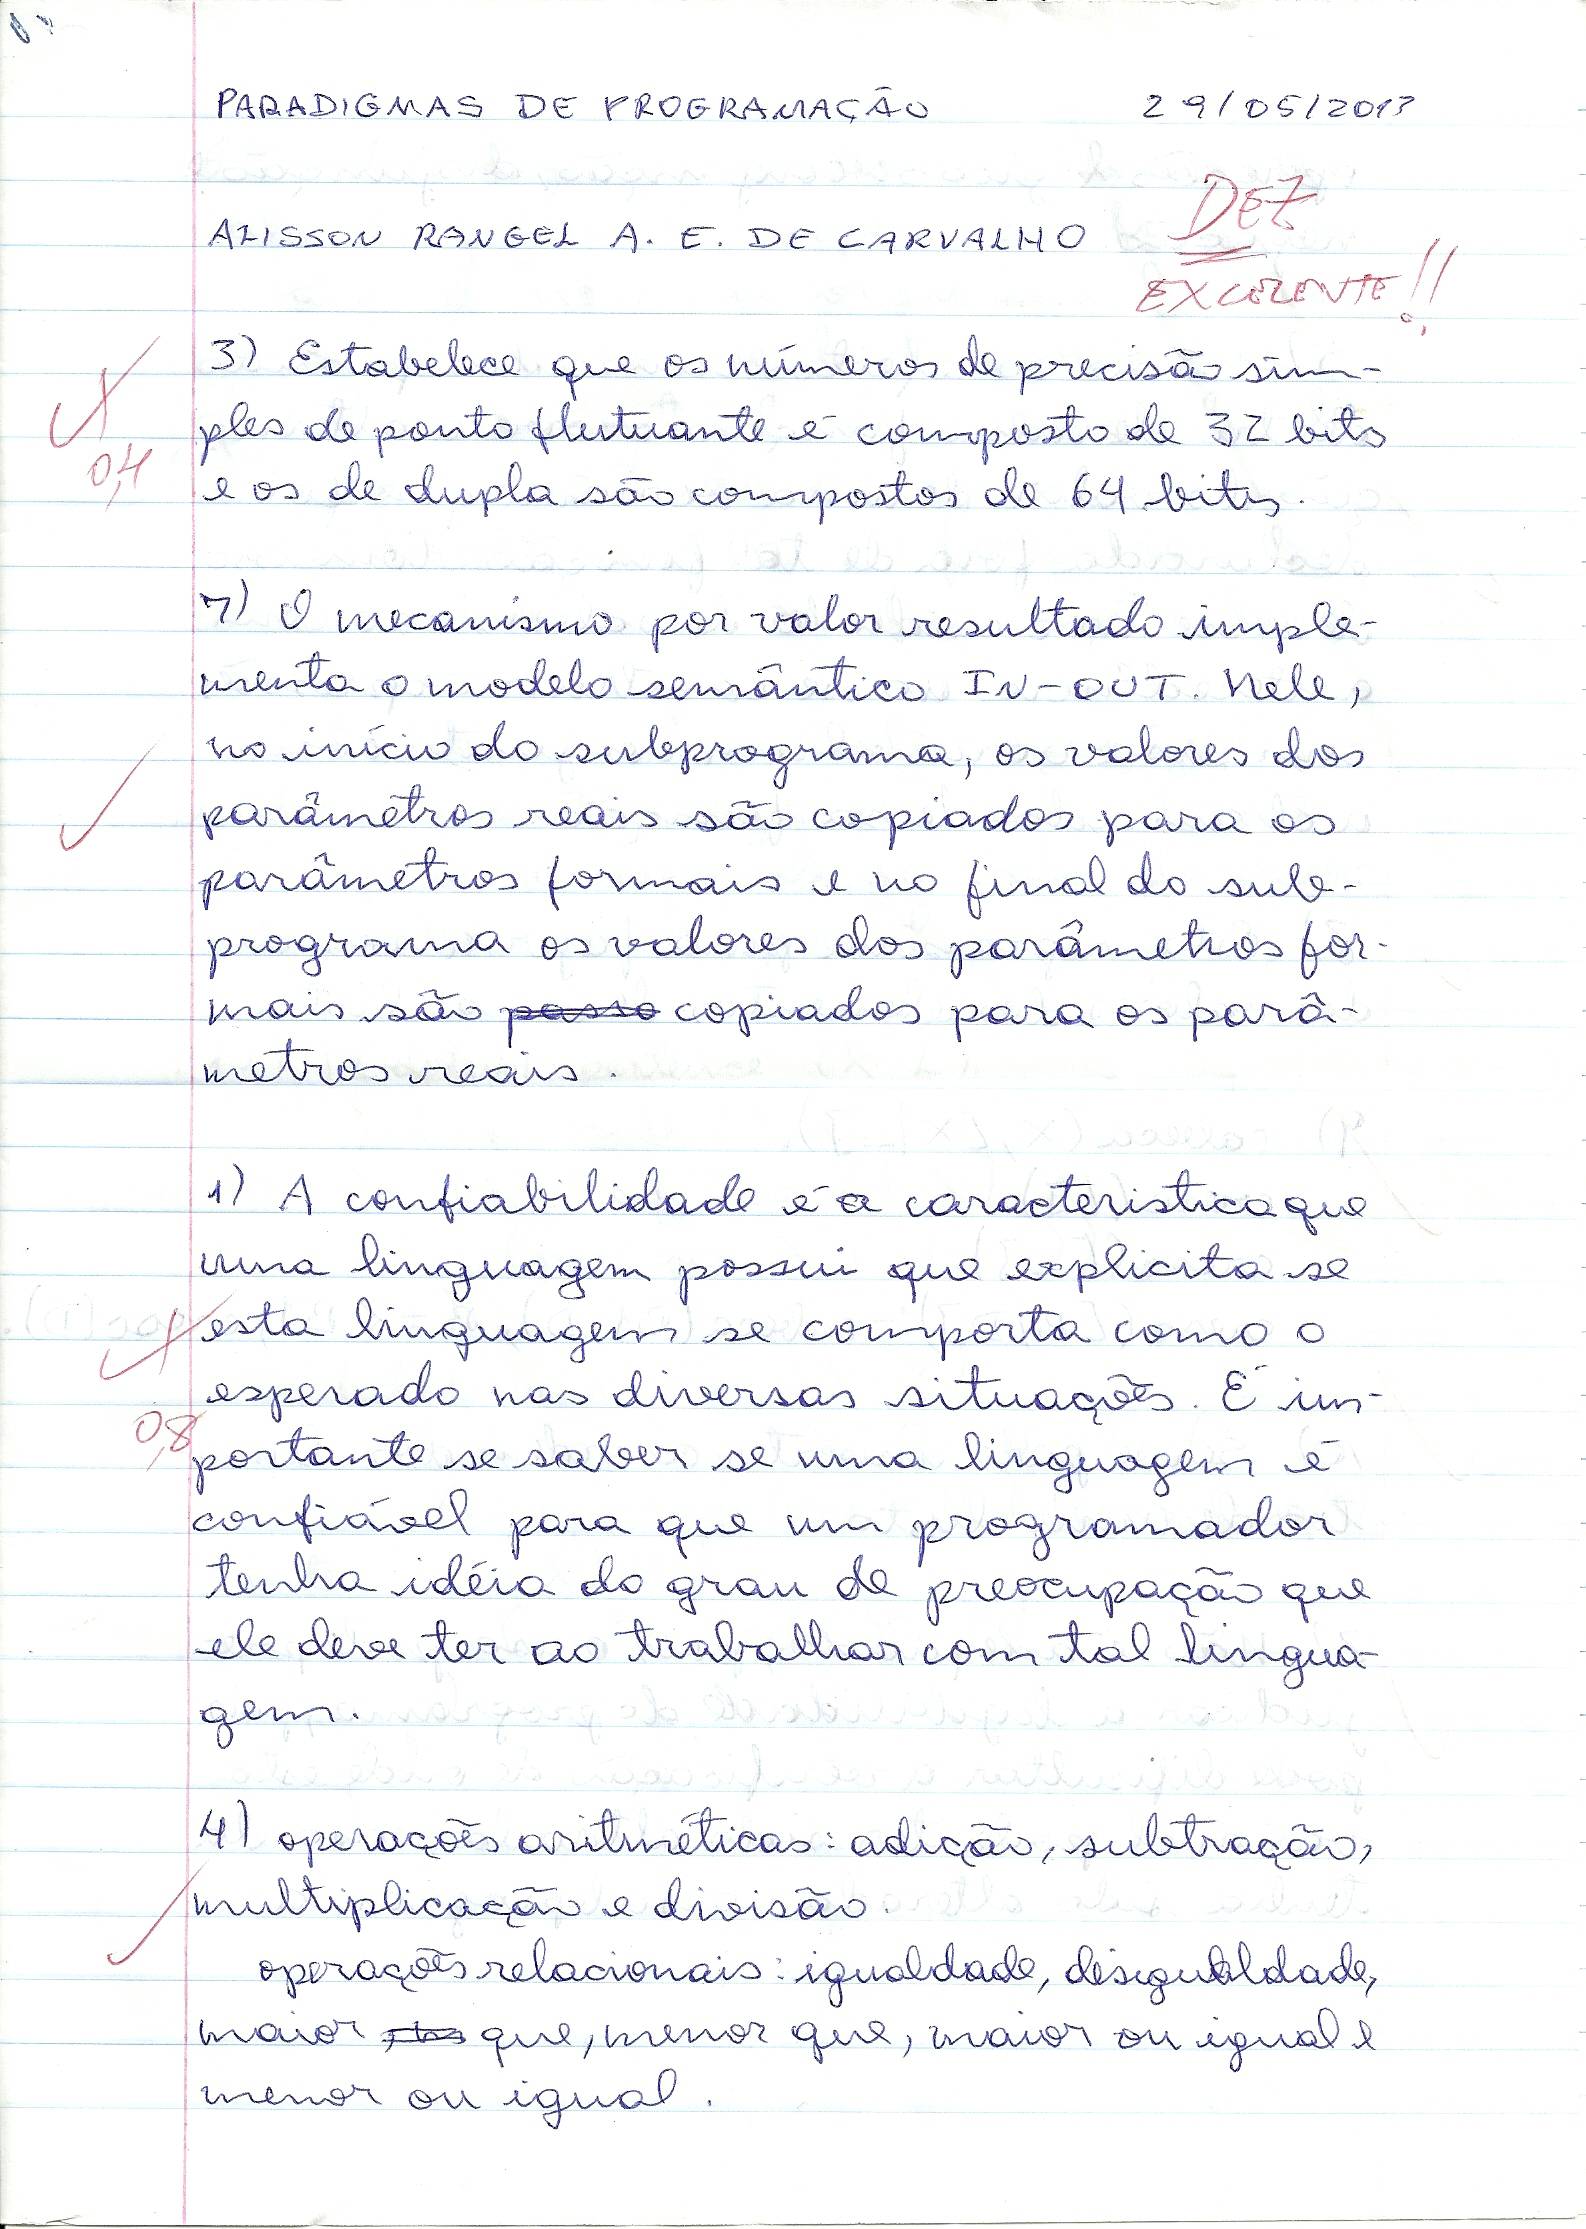 PARADIGMAS DE PROGRAMAÇÃO 29/05/2013
DEZ
ALISSON RANGEL A. E. DE CARVALHO
EXCELENTE!!
3) Estabelece que os números de precisão sim-
ples de ponto flutuante é composto de 32 bits
0,4
e os de dupla são compostos de 64 bits.
7) O mecanismo por valor resultado imple-
menta o modelo semântico IN-OUT. Nele,
no início do subprograma, os valores dos
parâmetros reais são copiados para os
parâmetros formais e no final do sub-
programa os valores dos parâmetros for-
mais são passo copiados para os parâ-
metros reais.
1) A confiabilidade é a caracteristica que
uma linguagem possui que explicita se
esta linguagem se comporta como o
esperado nas diversas situações. É im-
0,8
portante se saber se uma linguagem é
confiável para que um programador
tenha idéia do grau de preocupação que
ele deve ter ao trabalhar com tal lingua-
gem.
4) operações aritméticas: adição, subtração,
multiplicação e divisão.
operações relacionais: igualdade, desigualdade,
maior que, menor que, maior ou igual e
menor ou igual.